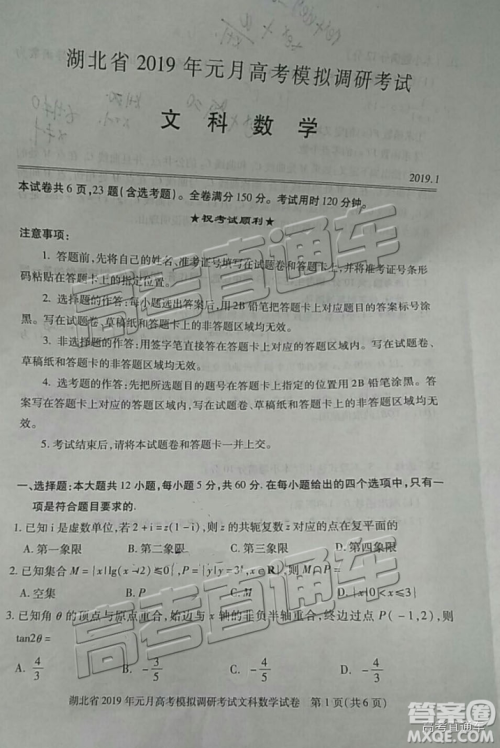 湖北省 2019 年元月高考模拟调研考试
文 科 数 学
2019.1
本试卷共 6 页,23 题(含选考题)。全卷满分 150 分。考试用时 120 分钟。
★祝考试顺利★
注意事项:
1. 答题前,先将自己的姓名、准考证号填写在试题卷和答题卡上,并将准考证号条形
码粘贴在答题卡上的指定位置。
2. 选择题的作答:每小题选出答案后,用 2B 铅笔把答题卡上对应题目的答案标号涂
黑。写在试题卷、草稿纸和答题卡上的非答题区域均无效。
3. 非选择题的作答:用签字笔直接答在答题卡上对应的答题区域内。写在试题卷、
草稿纸和答题卡上的非答题区域均无效。
4. 选考题的作答:先把所选题目的题号在答题卡上指定的位置用 2B 铅笔涂黑。答
案写在答题卡上对应的答题区域内,写在试题卷、草稿纸和答题卡上的非答题区域均无效。
5. 考试结束后,请将本试题卷和答题卡一并上交。
一、选择题:本大题共 12 小题,每小题 5 分,共 60 分. 在每小题给出的四个选项中,只有一
项是符合题目要求的.
1. 已知 i 是虚数单位,若 2+i=z(1-i),则 z 的共轭复数 z̄ 对应的点在复平面的
A. 第一象限 B. 第二象限 C. 第三象限 D. 第四象限
2. 已知集合 M={x|lg(x-2)≤0},P={y|y=3ˣ,x∈R},则 M∩P=
A. 空集 D. {x|0<x≤3}
3. 已知角 θ 的顶点与原点重合,始边与 x 轴的非负半轴重合,终边过点 P(-1,2),则
tan2θ=
A. 4/3 B. -4/3 C. D. -3/4
湖北省 2019 年元月高考模拟调研考试文科数学试卷 第 1 页(共 6 页)
高考直通车
高考直通车
高考直通车
答案圈